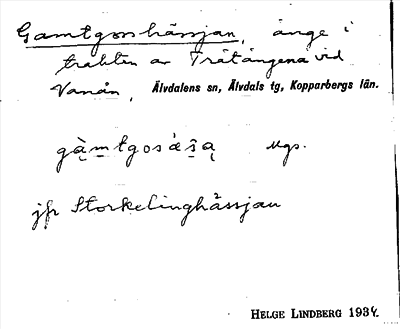 Gamtgosshässjan, änge i
trakten av Trätängena vid
Vanån, Älvdalens sn, Älvdals tg, Kopparbergs län.
ugs.
jfr Storkelinghässjan
HELGE LINDBERG 1934.